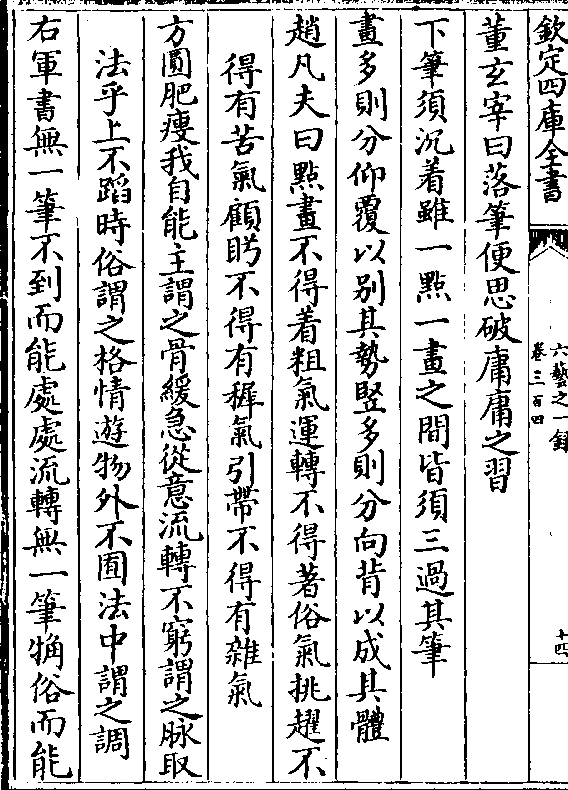 欽定四庫全書
六藝之一録
卷三百四
十四
董玄宰曰落筆便思破庸庸之習
下筆須沉着雖一點一畫之間皆須三過其筆
畫多則分仰覆以别其勢竪多則分向背以成其體
趙凡夫曰點畫不得着粗氣運轉不得著俗氣挑趯不
得有苦氣顧眄不得有穉氣引帶不得有雜氣
方圓肥瘦我自能主謂之骨緩急從意流轉不窮謂之脉取
法乎上不蹈時俗謂之格情遊物外不囿法中謂之調
右軍書無一筆不到而能處處流轉無一筆觕俗而能